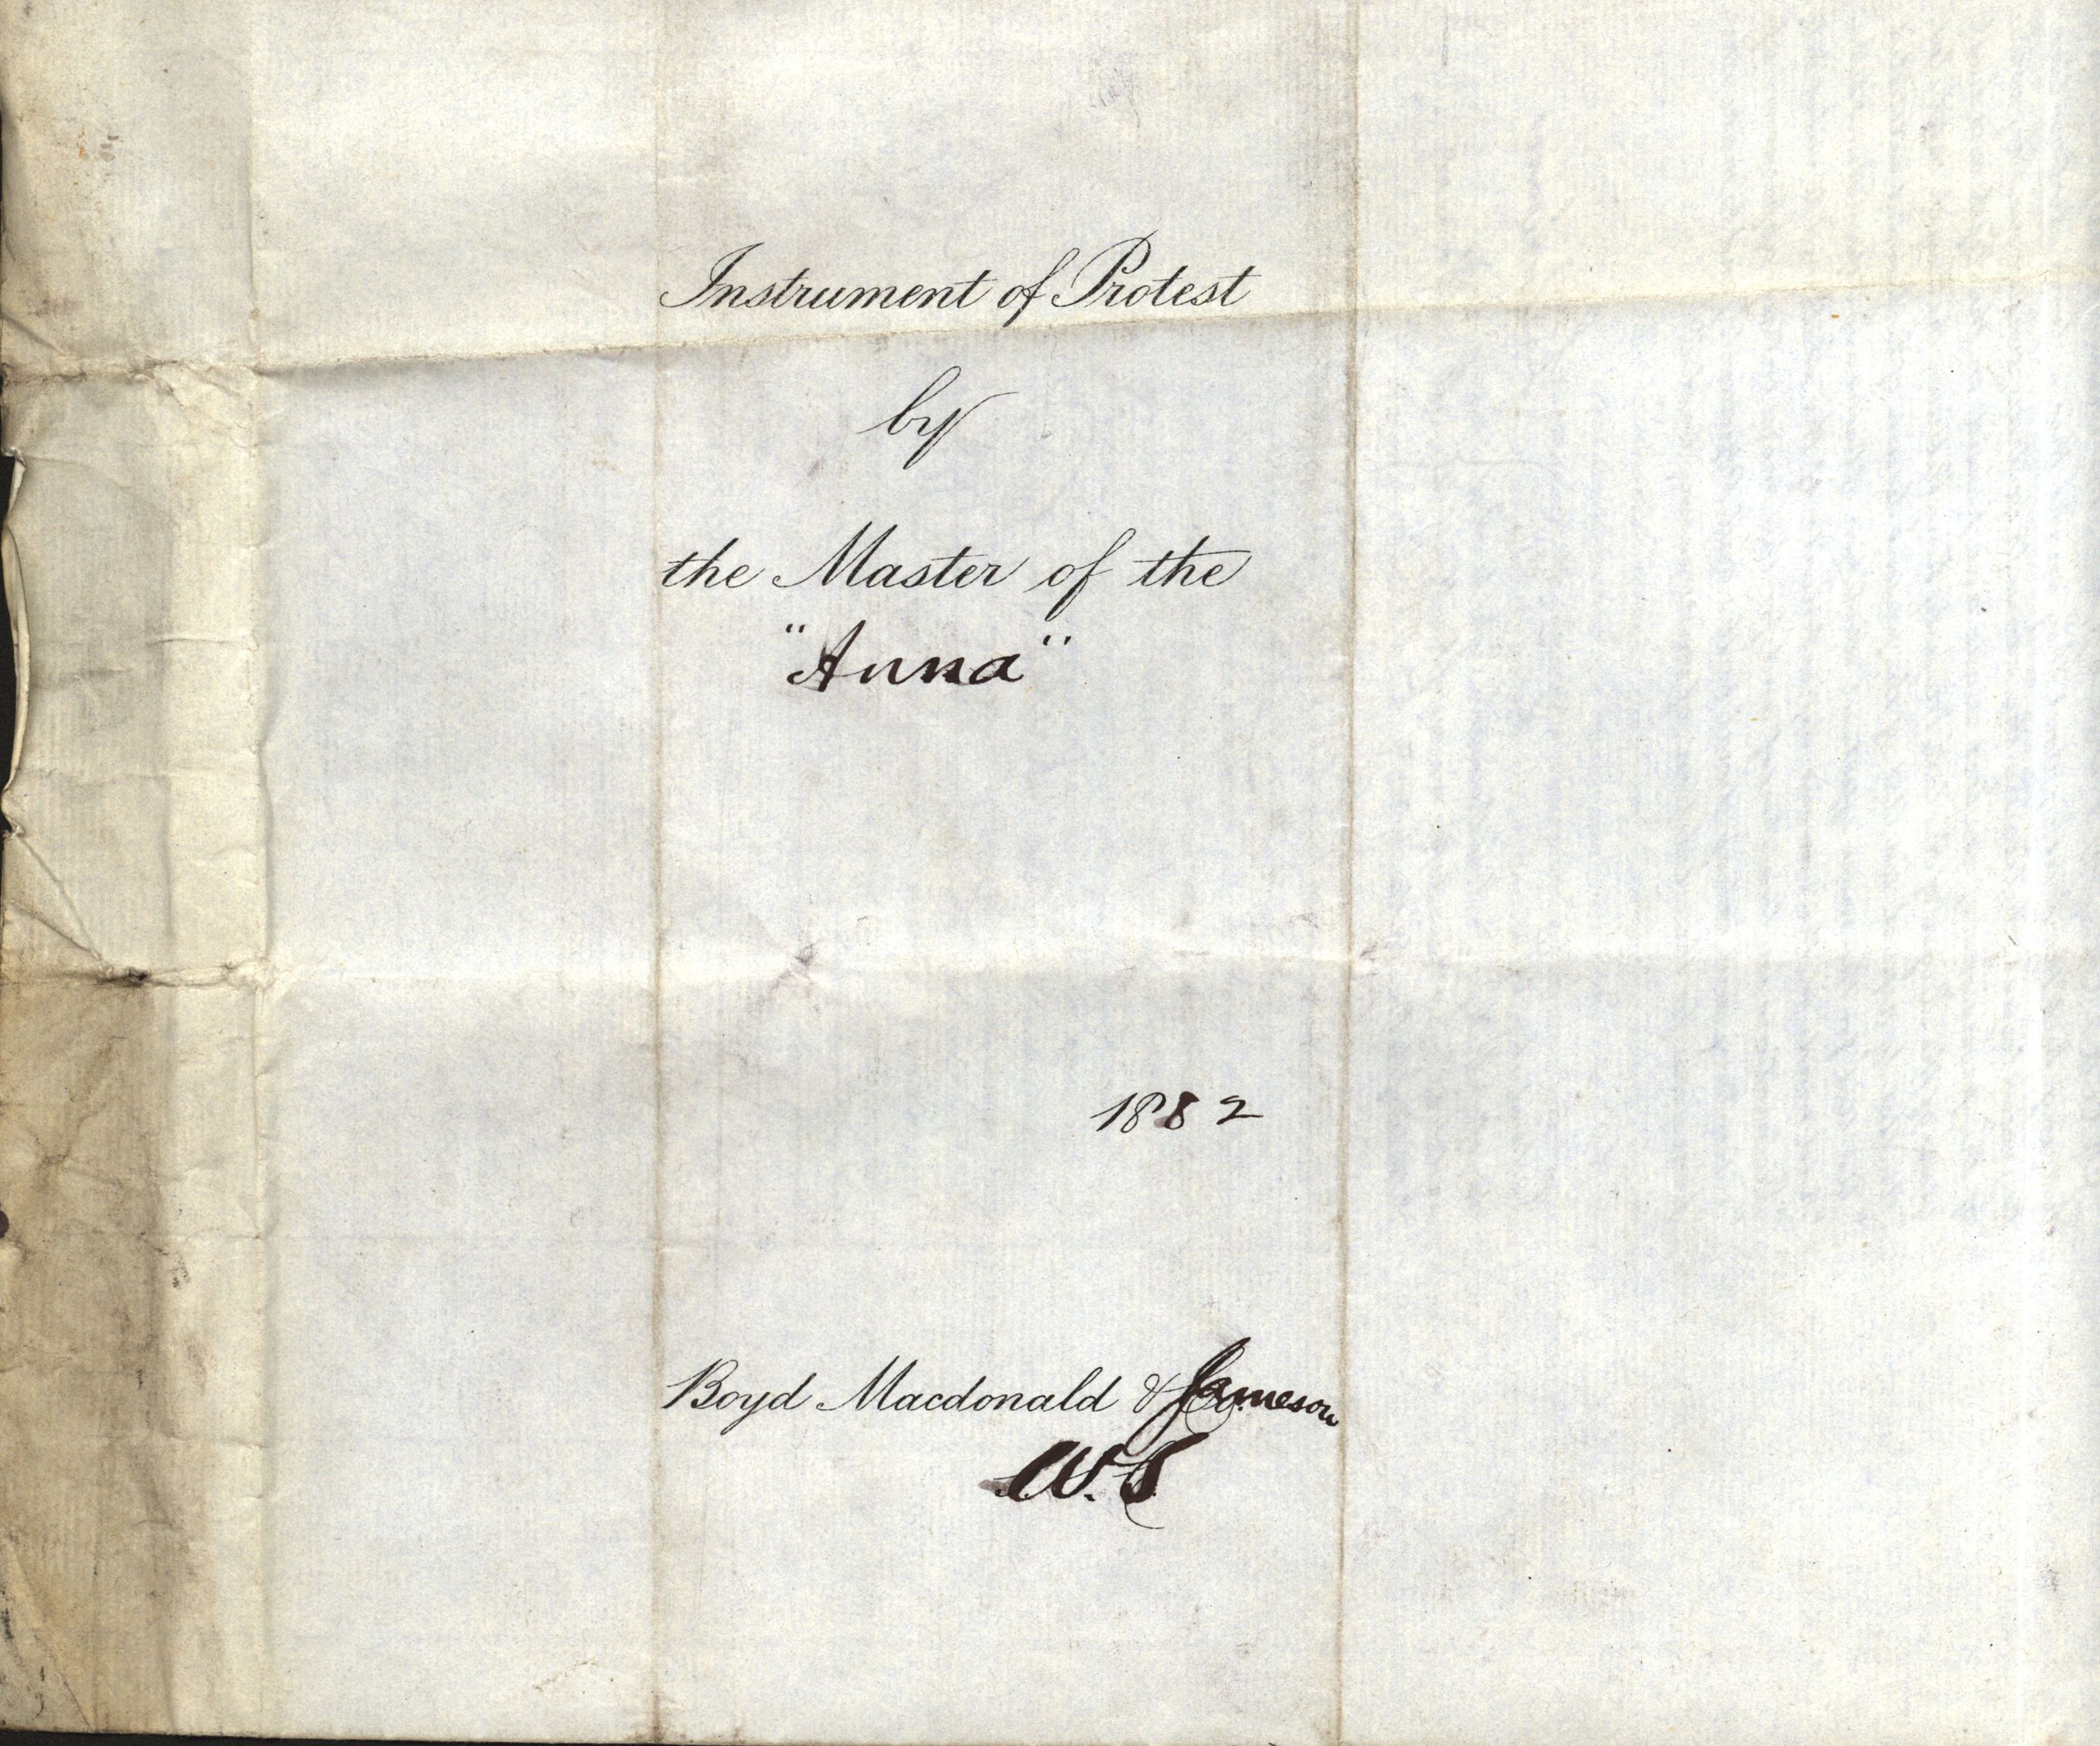 Instrument of Protest
by
the Master of the
"Anna"
1882
Boyd Macdonald & Jameson
W.S.